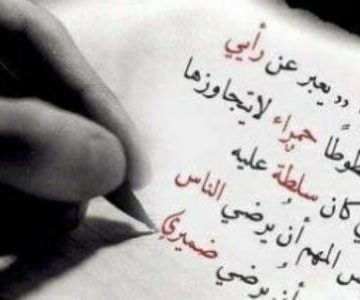 ,, يعبر عن رأيي
طوطًا حمراء لايتجاوزها
كان سلطة عليه
المهم أن يرضي الناس
أن يرضي ضميري